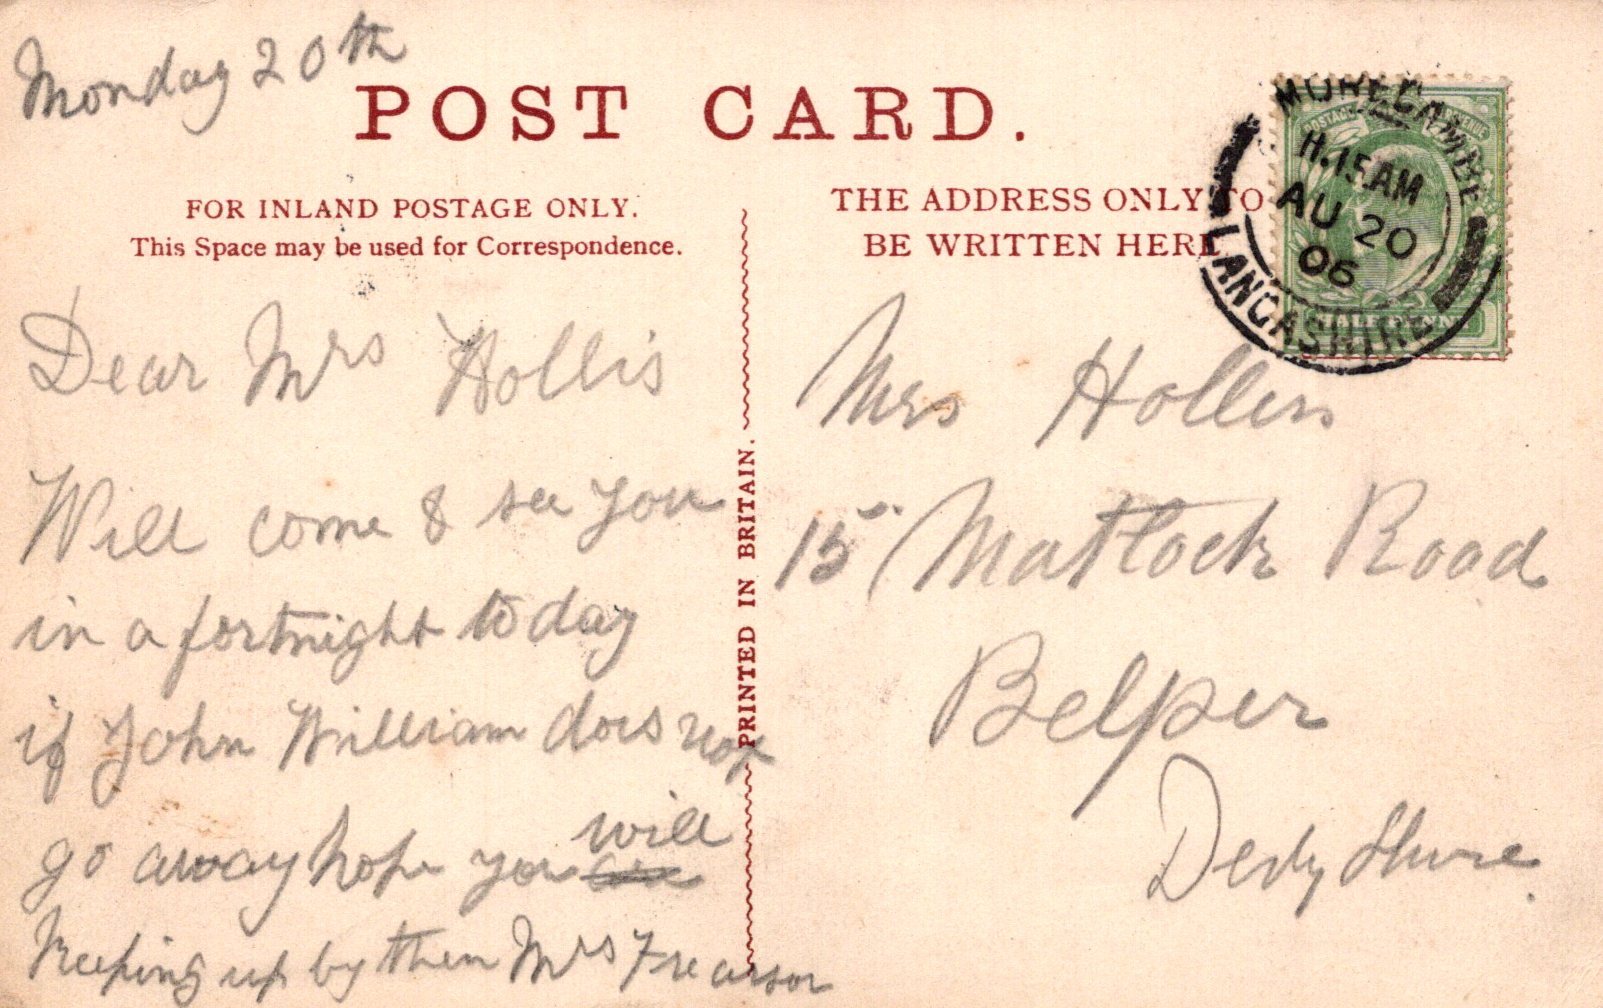 Monday 20th
POST CARD.
FOR INLAND POSTAGE ONLY.
This Space may be used for Correspondence.
THE ADDRESS ONLY TO
BE WRITTEN HERE
MORECAMBE
H.15AM
AU 20
06
LANCASHIRE
POSTAGE REVENUE
HALFPENNY
PRINTED IN BRITAIN.
Dear Mrs Hollis
Will come & see you
in a fortnight to day
if John William does not
go away hope you will
Keeping up by then Mrs Frearson
Mrs Hollis
15 Matlock Road
Belper